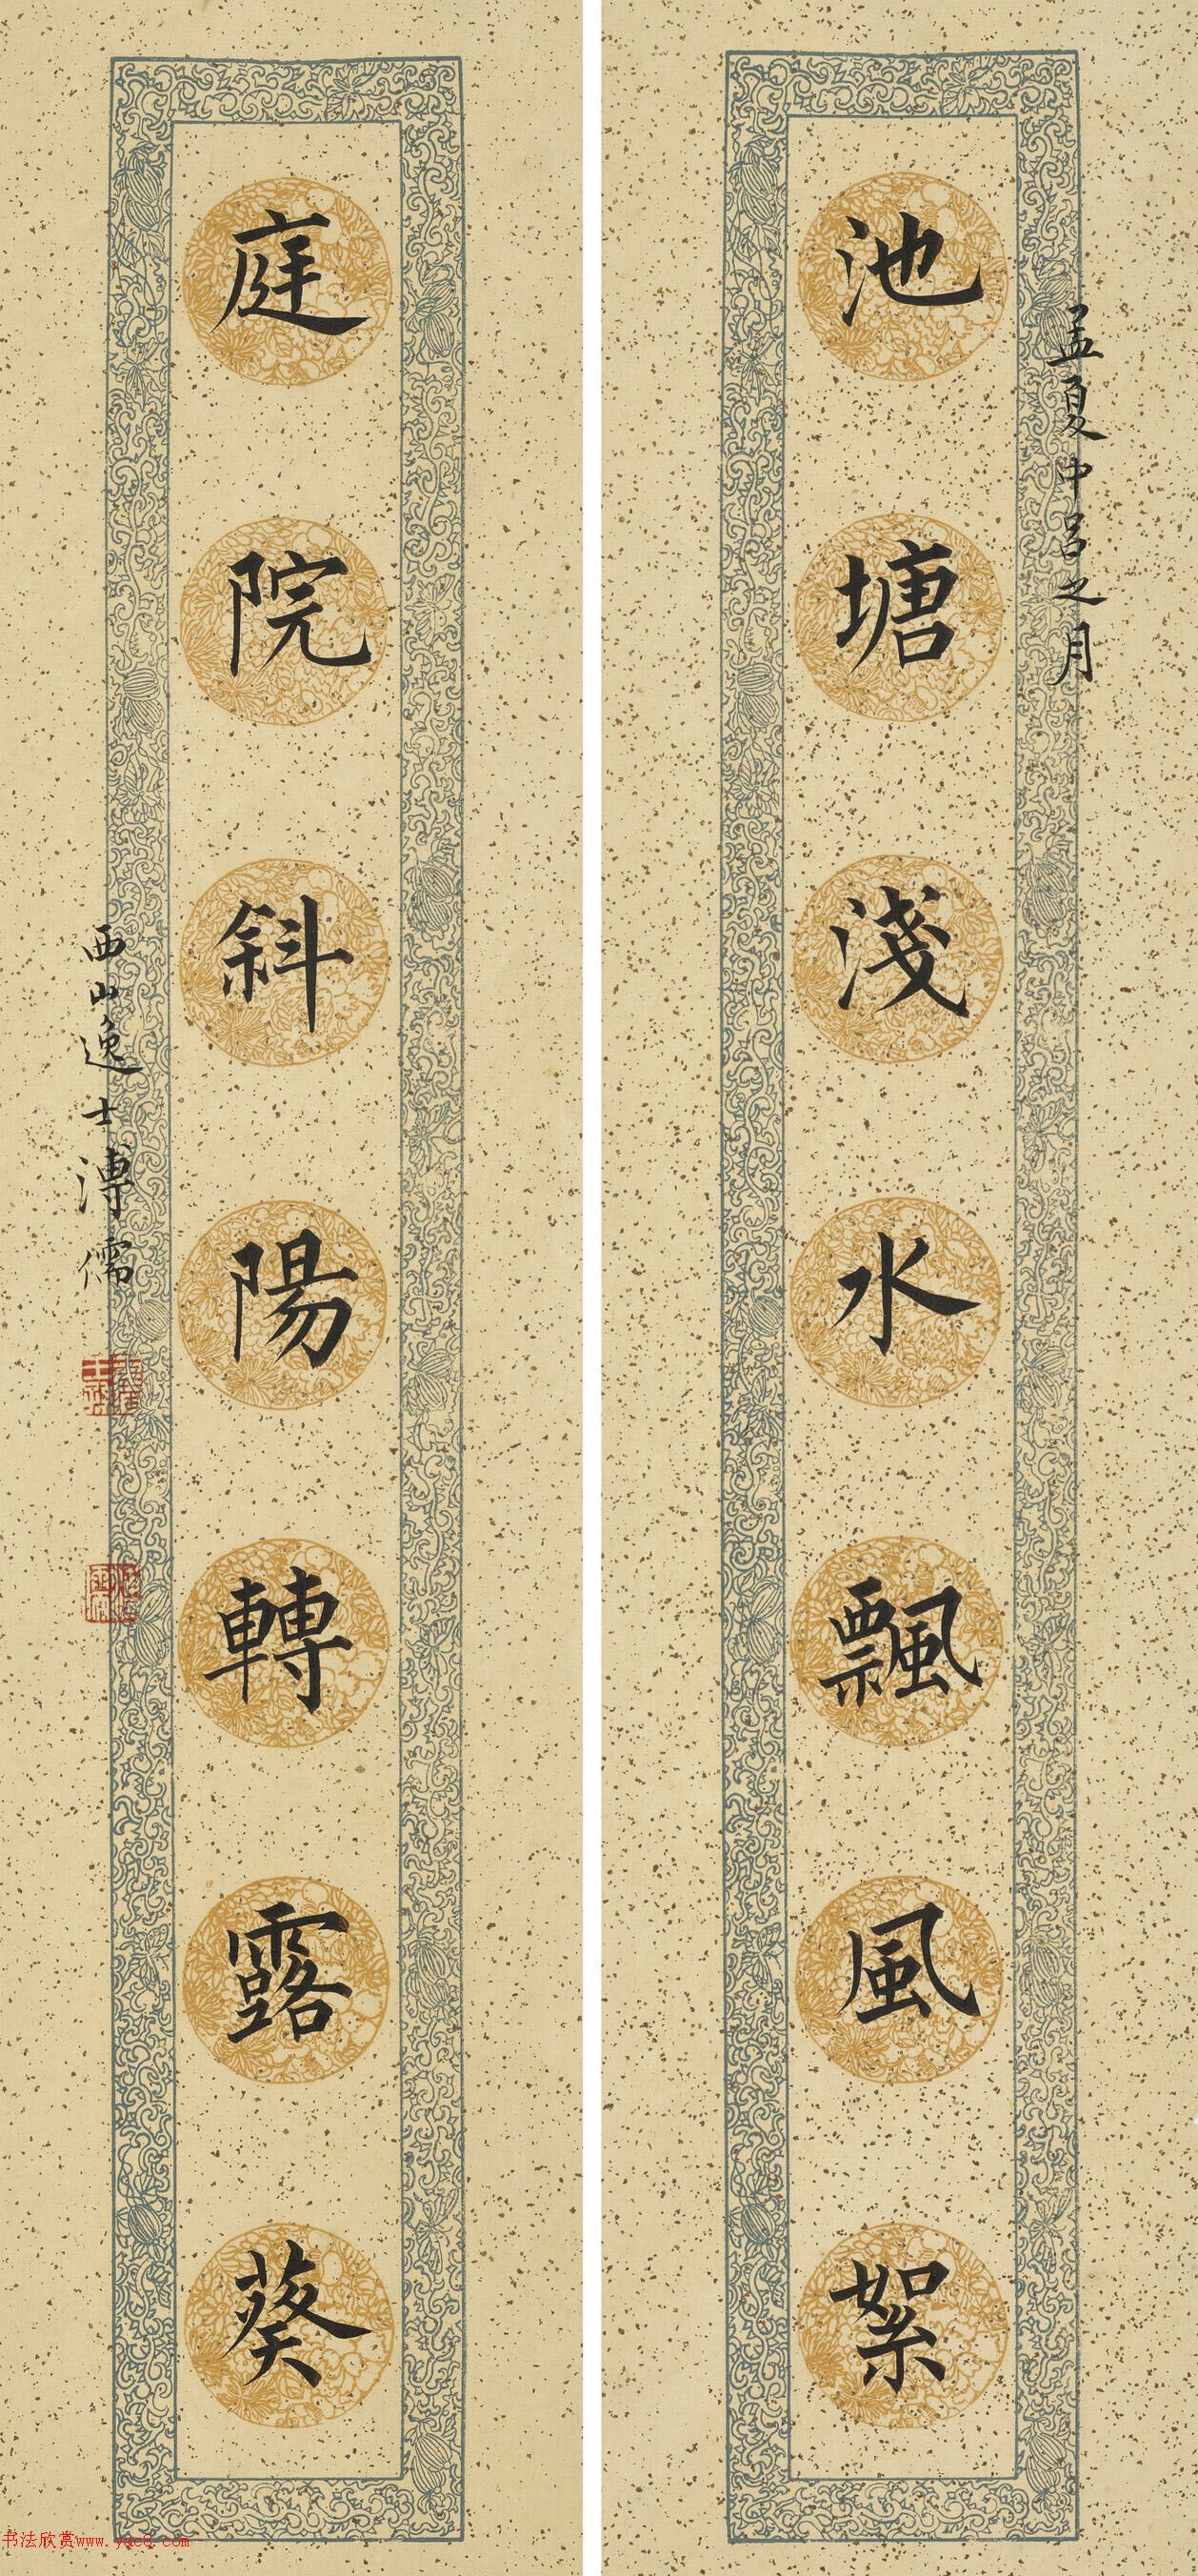 孟夏中呂之月
池塘淺水飄風絮
庭院斜陽轉露葵
西山逸士溥儒
书法欣赏www.yac8.com